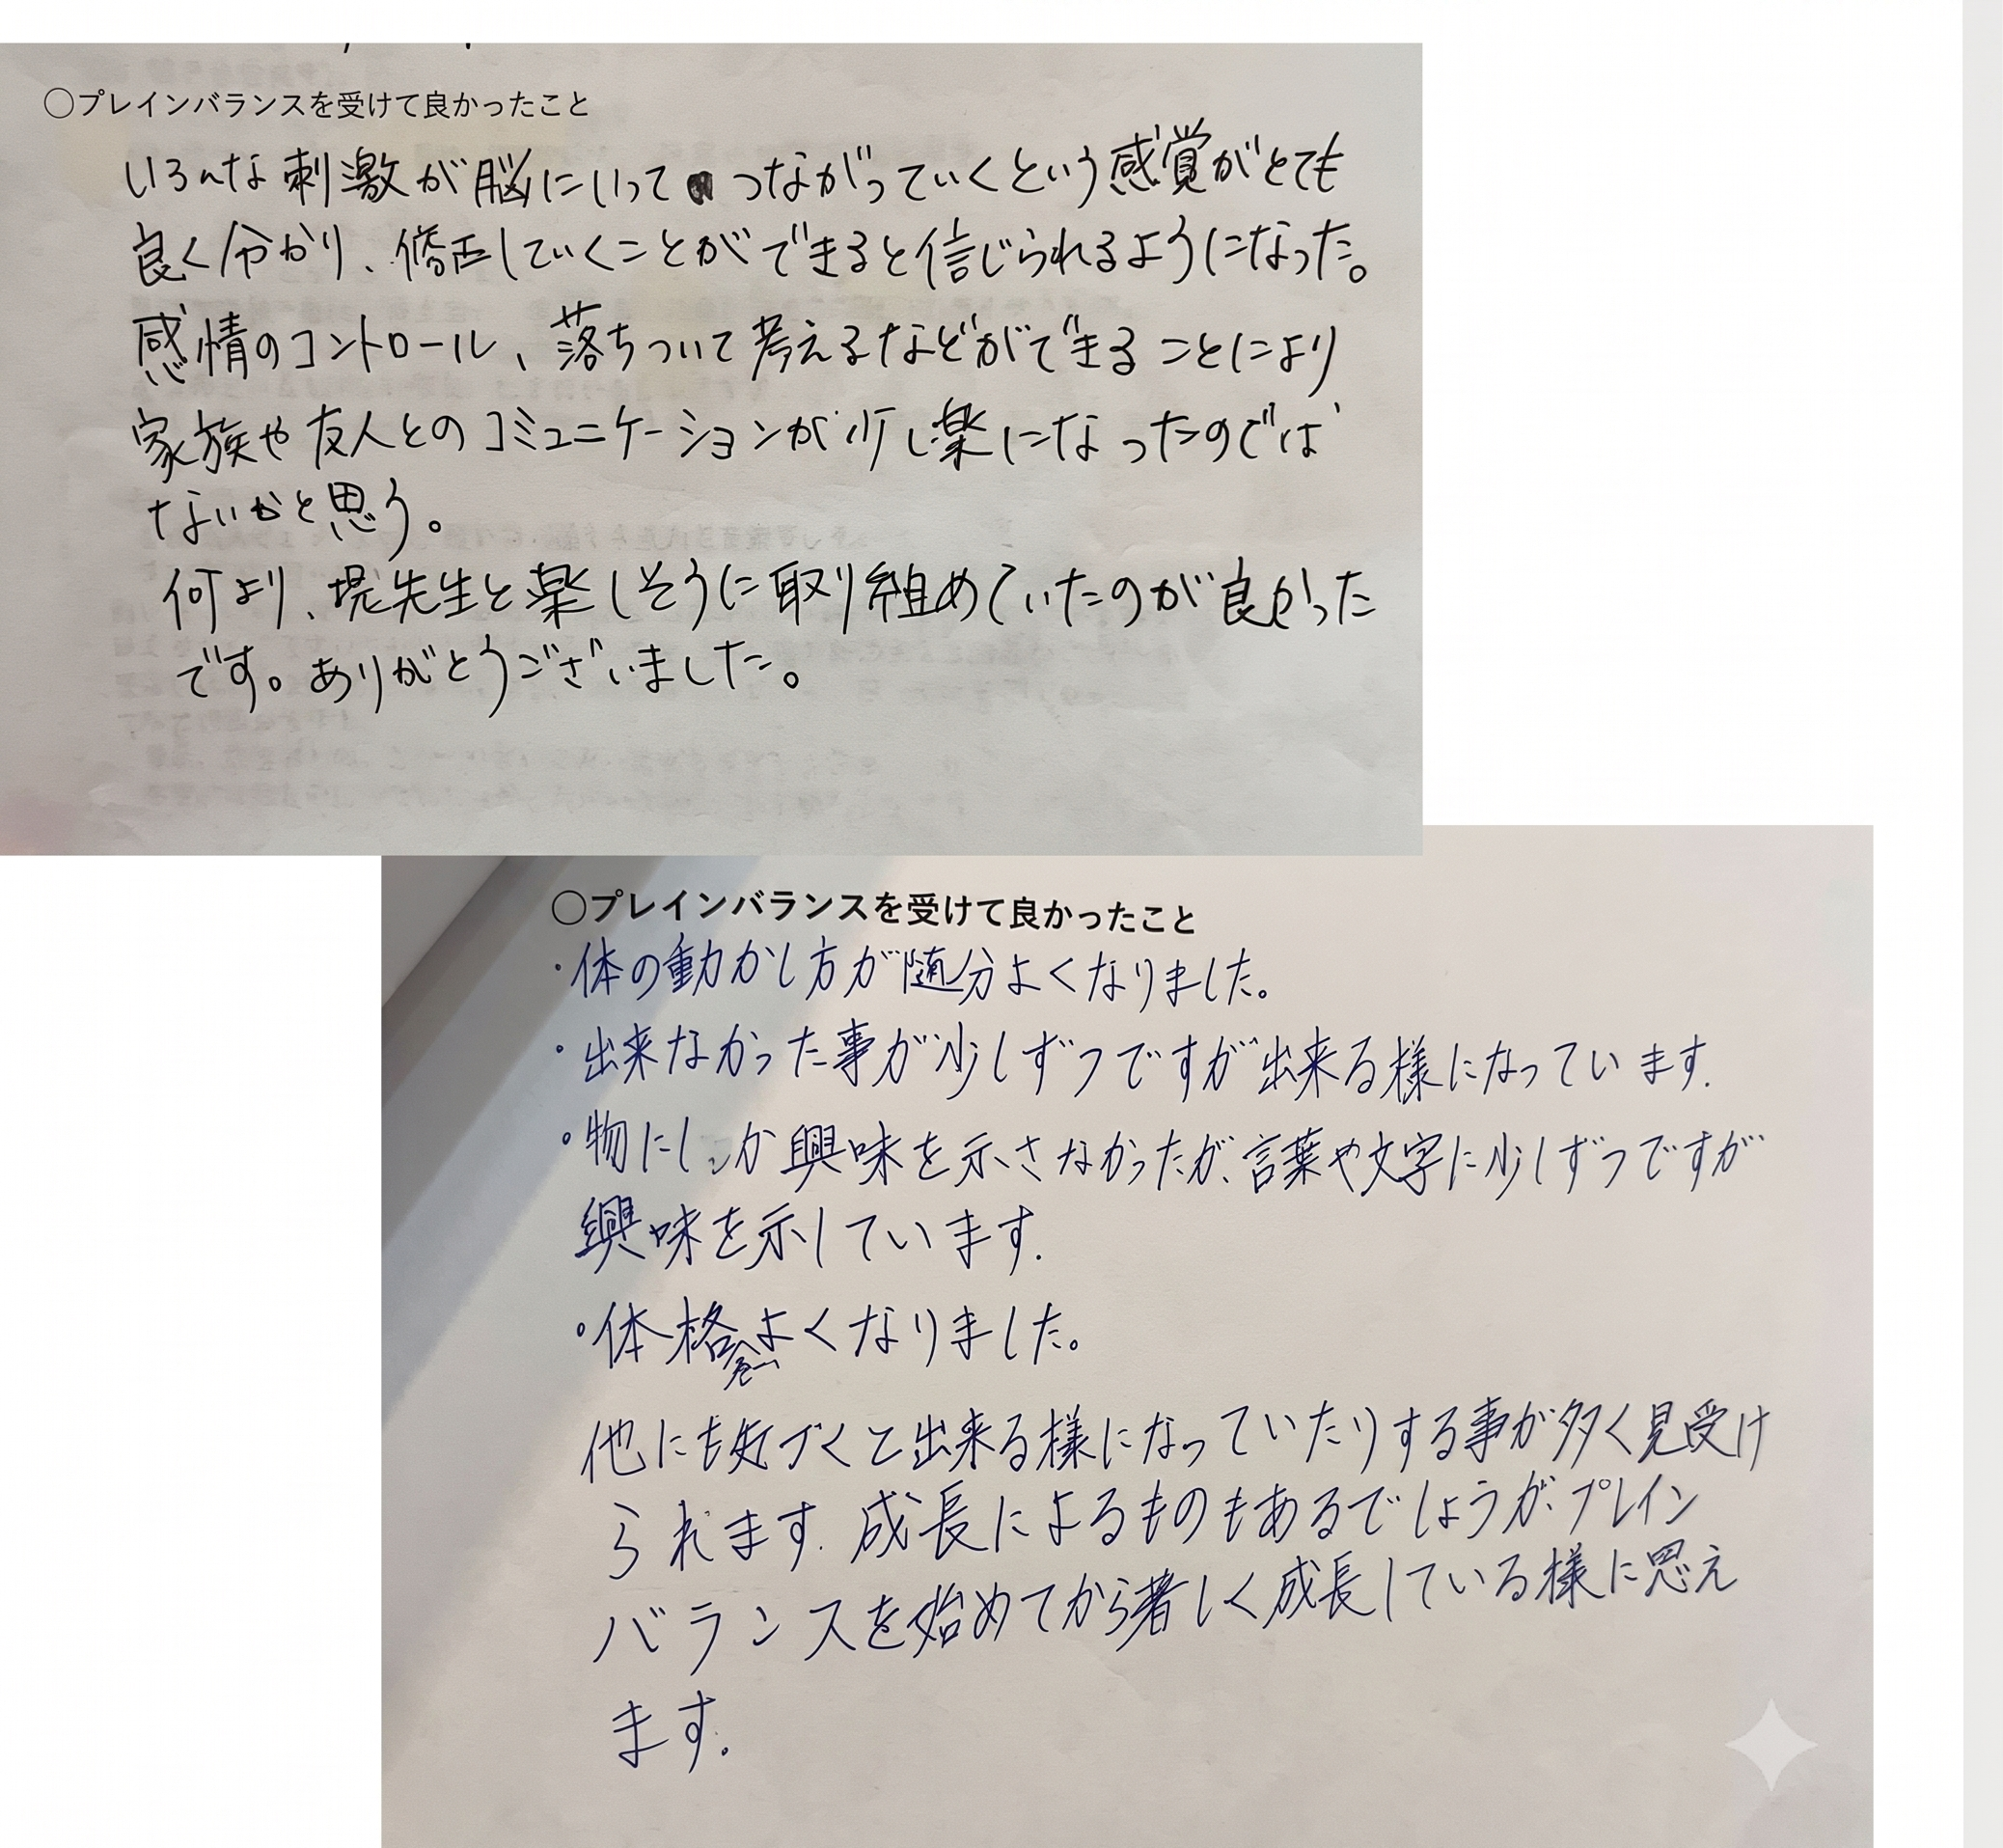 ○プレインバランスを受けて良かったこと
いろんな刺激が脳にいって つながっていくという感覚がとても
良く分かり、修正していくことができると信じられるようになった。
感情のコントロール、落ちついて考えるなどができることにより
家族や友人とのコミュニケーションが少し楽になったのでは
ないかと思う。
何より、堤先生と楽しそうに取り組めていたのが良かった
です。ありがとうございました。
○プレインバランスを受けて良かったこと
・体の動かし方が随分よくなりました。
・出来なかった事が少しずつですが出来る様になっています.
・物にしか興味を示さなかったが、言葉や文字に少しずつですが
興味を示しています.
・体格よくなりました。
他にも気づくと出来る様になっていたりする事が多く見受け
られます.成長によるものもあるでしょうが、プレイン
バランスを始めてから著しく成長している様に思え
ます.